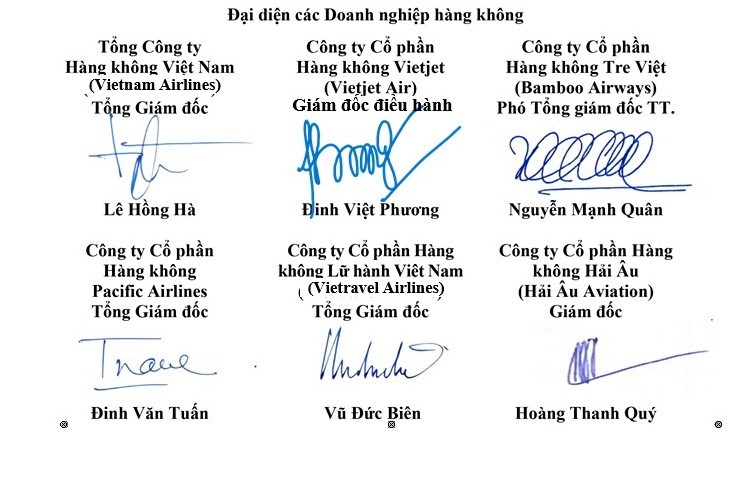 Đại diện các Doanh nghiệp hàng không
Tổng Công ty
Hàng không Việt Nam
(Vietnam Airlines)
Tổng Giám đốc
Lê Hồng Hà
Công ty Cổ phần
Hàng không Vietjet
(Vietjet Air)
Giám đốc điều hành
Đinh Việt Phương
Công ty Cổ phần
Hàng không Tre Việt
(Bamboo Airways)
Phó Tổng giám đốc TT.
Nguyễn Mạnh Quân
Công ty Cổ phần
Hàng không
Pacific Airlines
Tổng Giám đốc
Đinh Văn Tuấn
Công ty Cổ phần Hàng
không Lữ hành Việt Nam
(Vietravel Airlines)
Tổng Giám đốc
Vũ Đức Biên
Công ty Cổ phần Hàng
không Hải Âu
(Hải Âu Aviation)
Giám đốc
Hoàng Thanh Quý